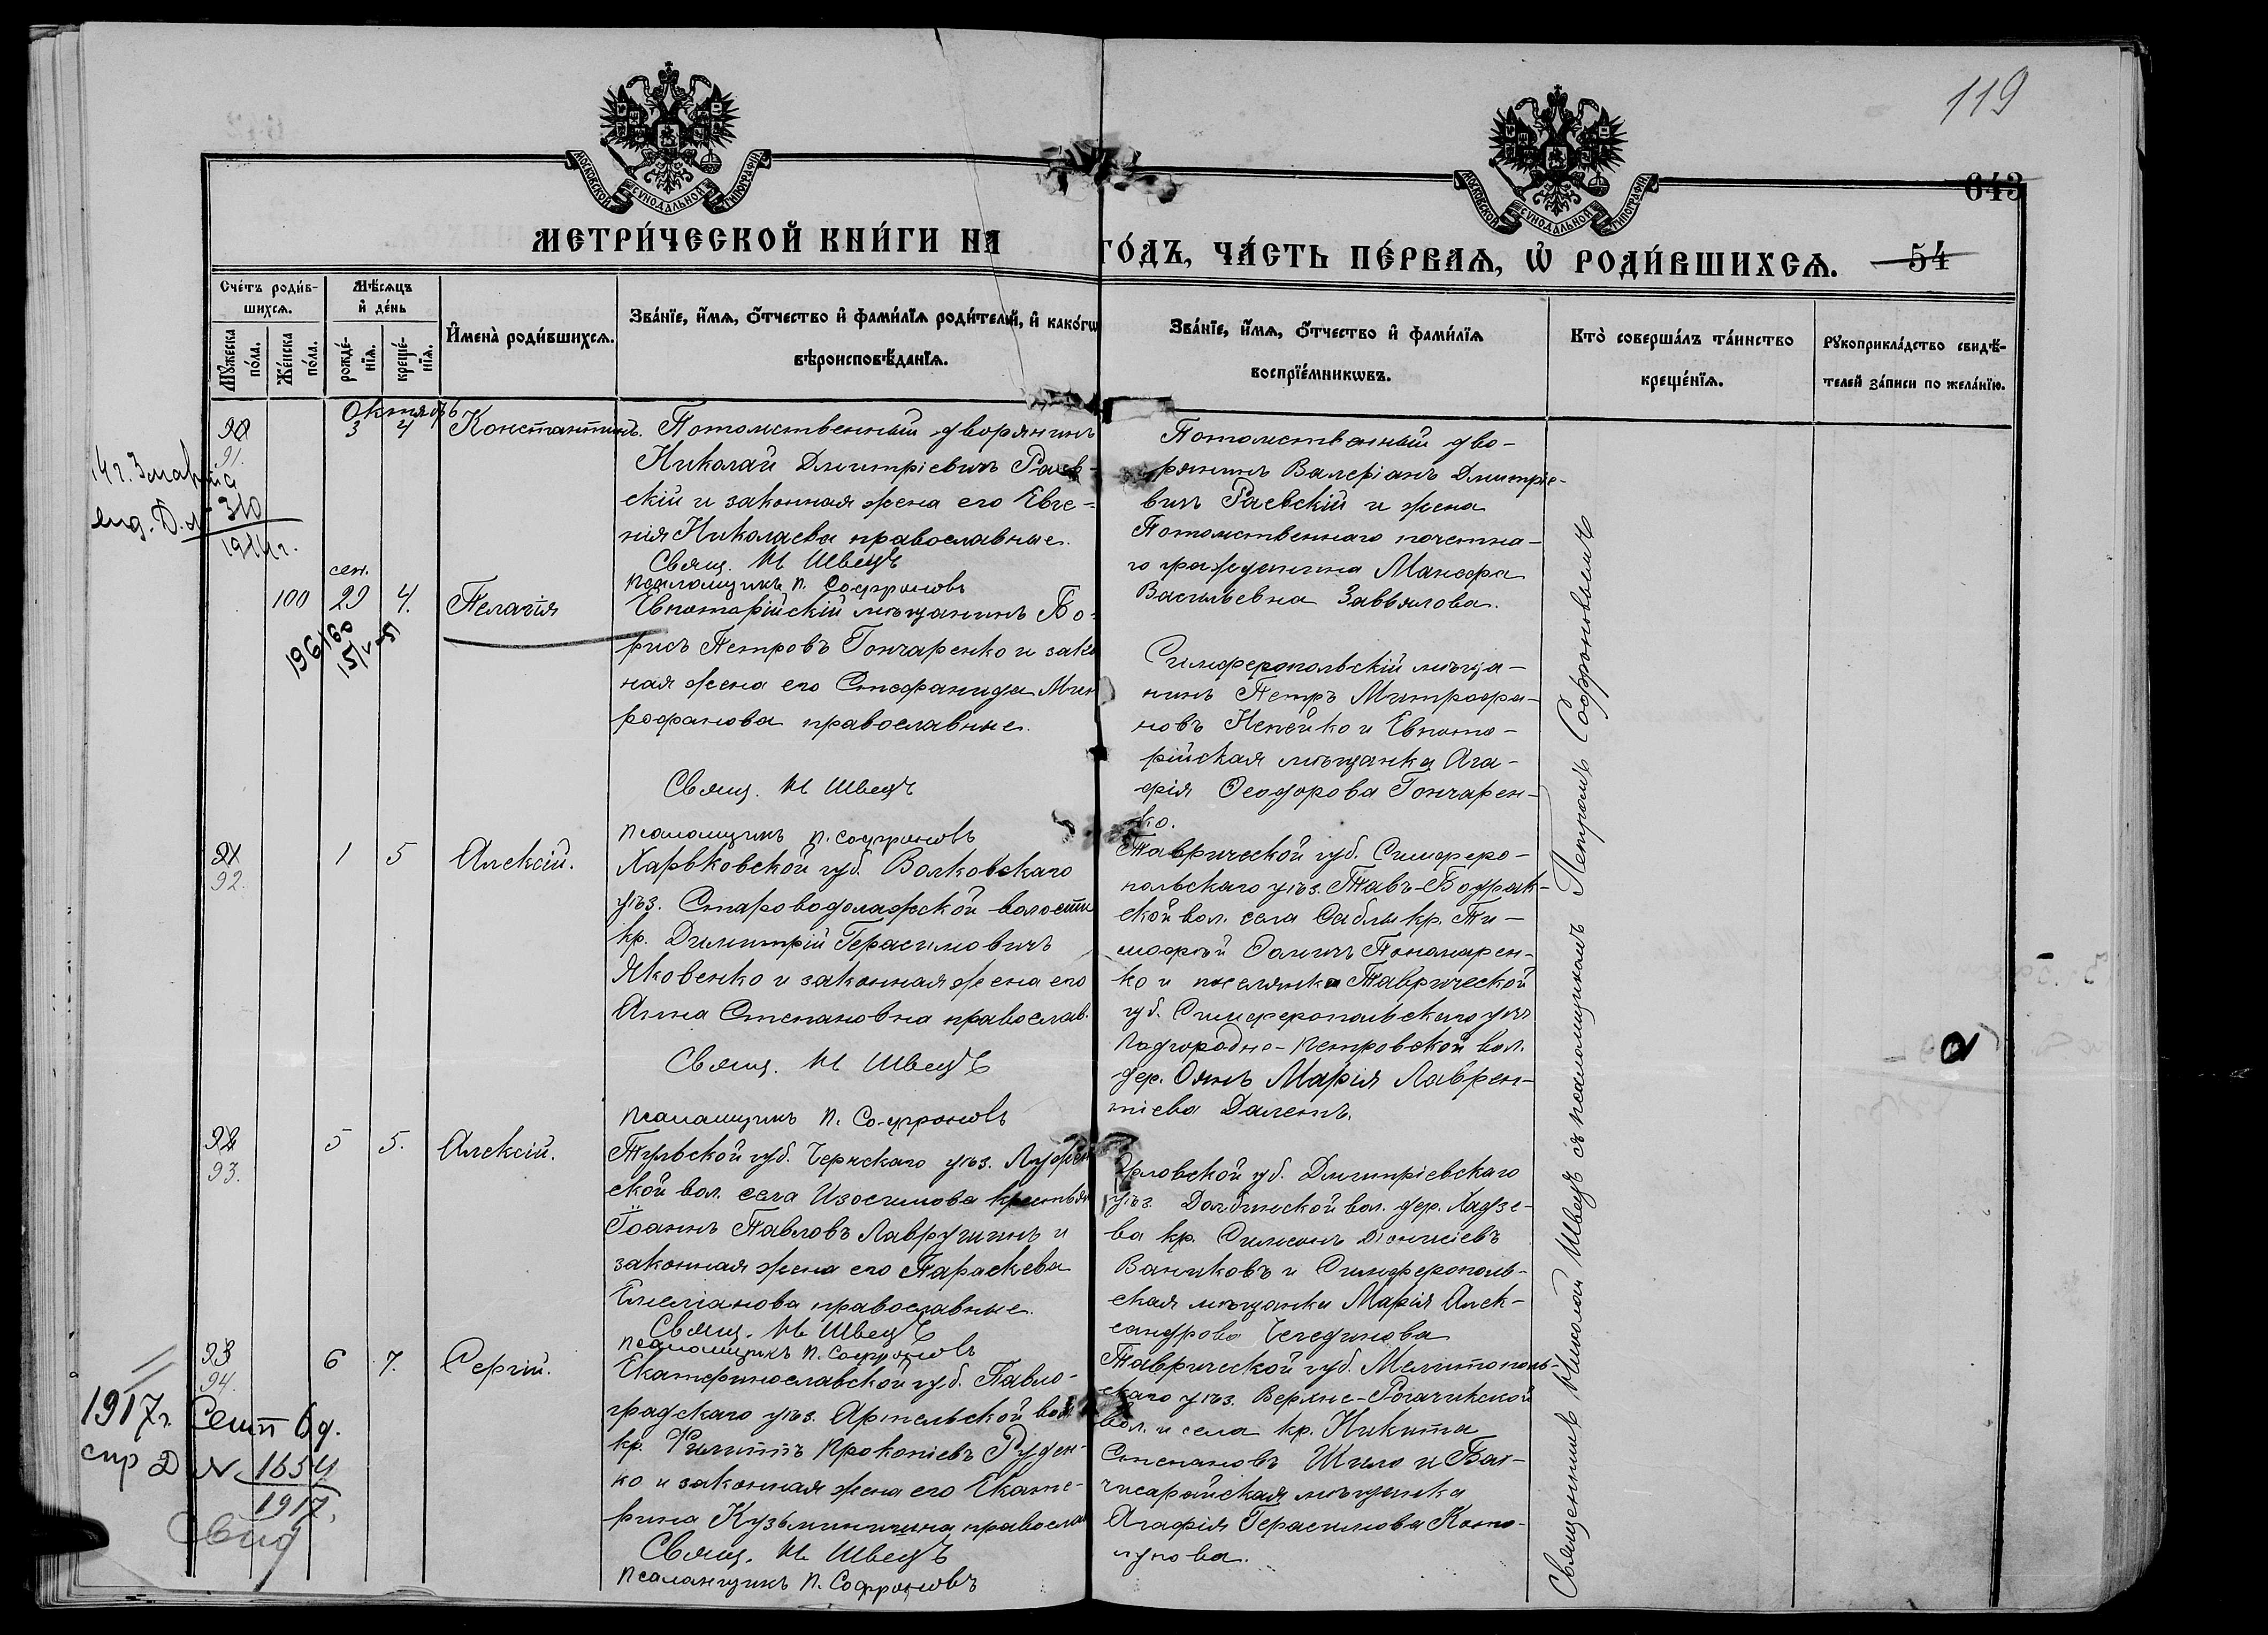 119
643
МОСКОВСКОЙ СѴНОДАЛЬНОЙ ТИПОГРАФІИ
МОСКОВСКОЙ СѴНОДАЛЬНОЙ ТИПОГРАФІИ
МЕТРИ́ЧЕСКОЙ КНИ́ГИ НА
ГО́ДЪ, ЧА́СТЬ ПЕ́РВАѦ, Ѡ҆ РОДИ́ВШИХСѦ.
54
Сче́тъ роди́в-
шихсѧ.
Мꙋ́жеска
по́ла.
Же́нска
по́ла.
Мѣ́сѧцъ
и҆ де́нь
рожде́-
нїѧ.
креще́-
нїѧ.
И҆мена̀ роди́вшихсѧ.
Зва́нїе, и҆́мѧ, ѻ҆́тчество и҆ фами́лїѧ роди́телей, и҆ како́гѡ
вѣроисповѣ́данїѧ.
Зва́нїе, и҆́мѧ, ѻ҆́тчество и҆ фами́лїѧ
воспрїе́мникѡвъ.
Кто̀ соверша́лъ та́инство
креще́нїѧ.
Рꙋкоприкла́дство свидѣ́-
телей за́писи по жела́нїю.
Октябрь
90
91.
3 4
Константинъ.
Потомственный дворянинъ
Николай Дмитріевичъ Раев-
скій и законная жена его Евге-
нія Николаева православные.
Свящ. Н Швецъ
псаломщикъ П. Софроновъ
Потомственный дво-
рянинъ Валеріанъ Дмитріе-
вичъ Раевскій и жена
Потомственнаго почетна-
го гражданина Манефа
Васильевна Завьялова.
310
1914 г.
100
сен.
29 4.
Пелагія
Евпаторійскій мѣщанинъ Бо-
рисъ Петровъ Гончаренко и зако
ная жена его Стефанида Мит
рофанова православные.
Свящ. Н Швецъ
псаломщикъ П. Софроновъ
Симферопольскій мѣща-
нинъ Петръ Митрофа-
новъ Непейко и Евпато-
рійская мѣщанка Ага-
фія Ѳеодорова Гончарен-
ко.
91
92.
1 5
Алексій.
Харьковской губ. Волковскаго
уѣз. Староводолажской волости
кр. Димитрій Герасимовичъ
Яковенко и законная жена его
Анна Степановна православ.
Свящ. Н Швецъ
псаломщикъ П. Софроновъ
Таврической губ. Симферо-
польскаго уѣз. Тавъ-Бодрак-
ской вол. села Саблы кр. Ти-
моѳей Ѳомичъ Пономарен-
ко и поселянка Таврической
губ. Симферопольскаго уѣз.
Подгородне-Петровской вол.
дер. Оянъ Марія Лаврен-
тіева
92
93.
5 5.
Алексій.
Тульской губ. Чернскаго уѣз.
ской вол. села Изосимова крестьян
Іоаннъ Павловъ Лаврушинъ и
законная жена его Параскева
Емеліанова православные.
Свящ. Н Швецъ
псаломщикъ П. Софроновъ
Орловской губ. Дмитріевскаго
уѣз. вол. дер.
ва кр. Симеонъ Діонисіевъ
Ваничковъ и Симферополь-
ская мѣщанка Марія Алек-
сандрова
93
94.
6 7.
Сергій.
Екатеринославской губ. Павло-
градскаго уѣз. Артельской вол.
кр. Филиппъ Прокопіевъ Руден-
ко и законная жена его Екате-
рина Кузьминична правосла
Свящ. Н Швецъ
псаломщикъ П. Софроновъ
Таврической губ. Мелитополь-
скаго уѣз. Верхне-Рогачикской
вол. и села кр. Никита
Степановъ Шило и Бах-
чисарайская мѣщанка
Агафія Герасимова
1917 г. Сент 6 д.
спр Д № 1654
1917.
Свид
Священникъ Николай Швецъ съ псаломщикомъ Петромъ Софроновымъ